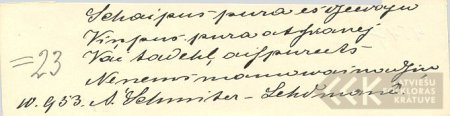 Schaipus pura es dzeedaju
Viņpus pura atskanej
Vai tadehļ aispureets
Nenems manu wainadziņ
=23
W. 953. A. Lehmiter-Lehdmane.
LATVIEŠU
FOLKLORAS
KRĀTUVE